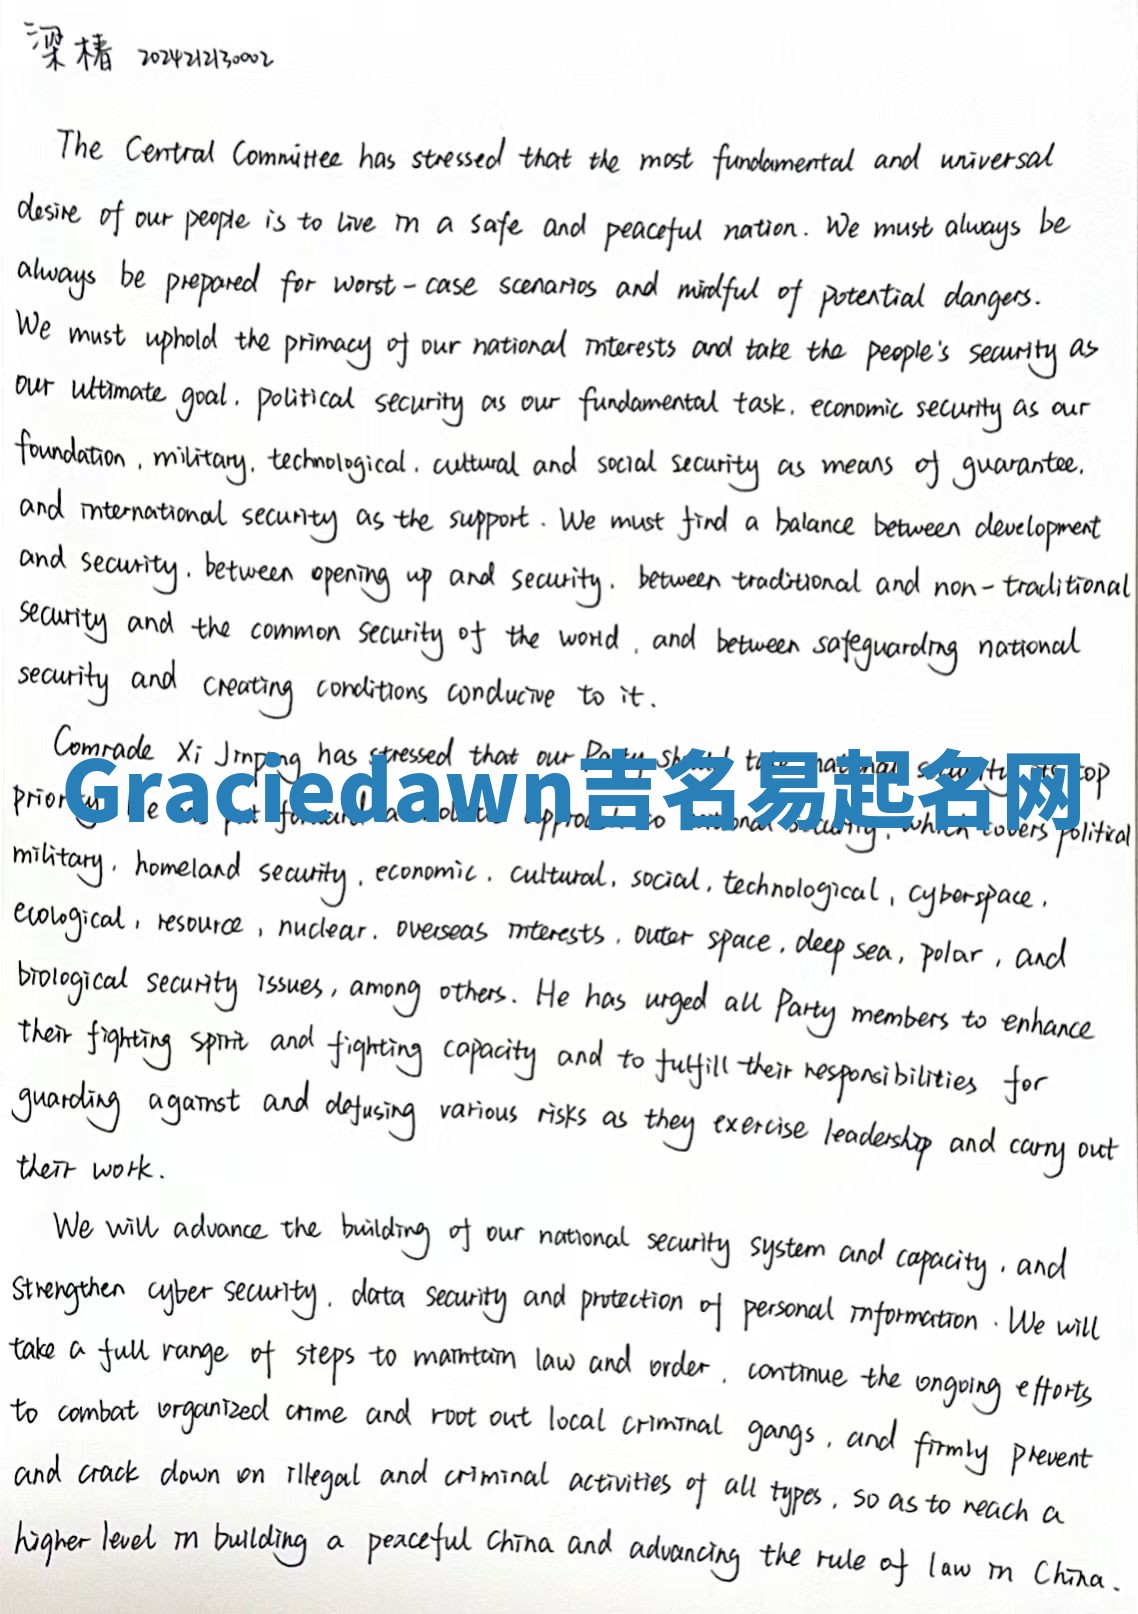 梁椿 2024212130002
The Central Committee has stressed that the most fundamental and universal
desire of our people is to live in a safe and peaceful nation. We must always be
always be prepared for worst-case scenarios and mindful of potential dangers.
We must uphold the primacy of our national interests and take the people's security as
our ultimate goal, political security as our fundamental task, economic security as our
foundation, military, technological, cultural and social security as means of guarantee,
and international security as the support. We must find a balance between development
and security, between opening up and security, between traditional and non-traditional
security and the common security of the world, and between safeguarding national
security and creating conditions conducive to it.
Comrade Xi Jinping has stressed that our Party should take national security its top
Graciedawn吉名易起名网
priority. He has put forward a holistic approach to national security, which covers political
military, homeland security, economic, cultural, social, technological, cyberspace,
ecological, resource, nuclear, overseas interests, outer space, deep sea, polar, and
biological security issues, among others. He has urged all Party members to enhance
their fighting spirit and fighting capacity and to fulfill their responsibilities for
guarding against and defusing various risks as they exercise leadership and carry out
their work.
We will advance the building of our national security system and capacity, and
strengthen cyber security, data security and protection of personal information. We will
take a full range of steps to maintain law and order, continue the ongoing efforts
to combat organized crime and root out local criminal gangs, and firmly prevent
and crack down on illegal and criminal activities of all types, so as to reach a
higher level in building a peaceful China and advancing the rule of law in China.